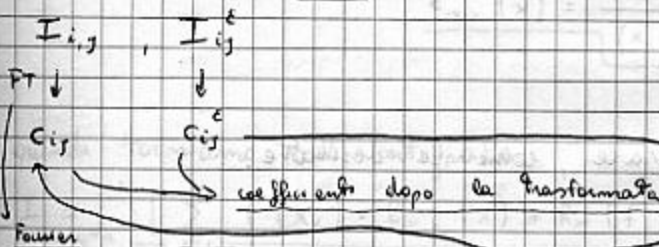 I i,j , I ij ε
FT ↓ ↓
Cij Cij ε
coefficienti dopo la trasformata
Fourier